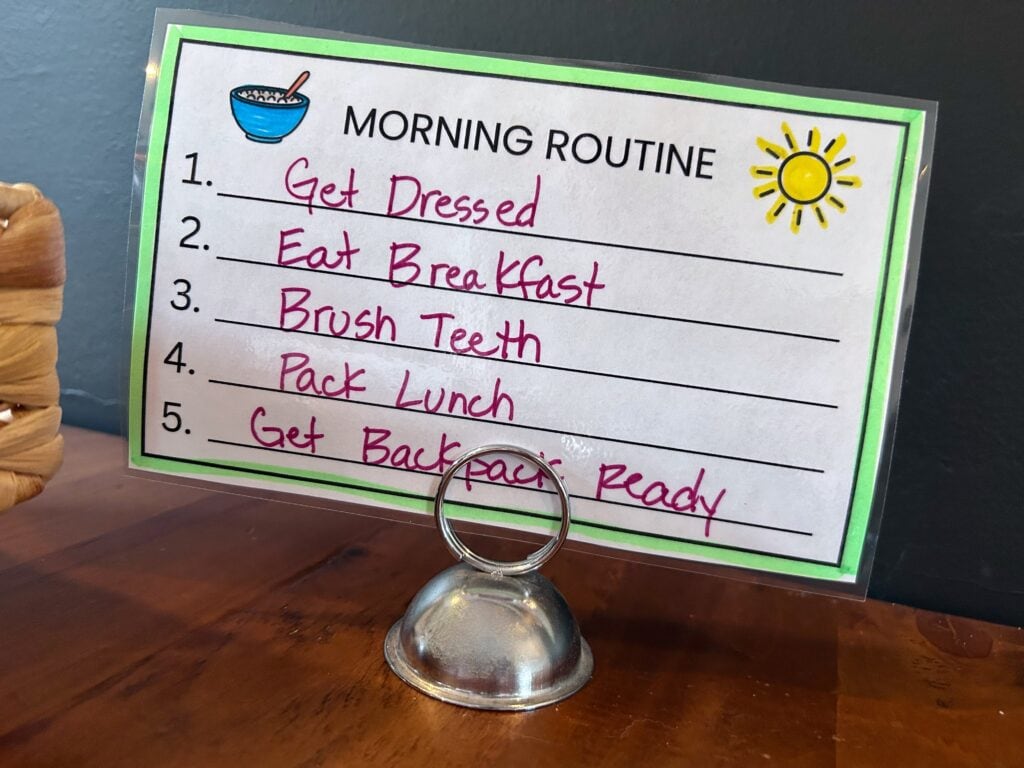 MORNING ROUTINE
1. Get Dressed
2. Eat Breakfast
3. Brush Teeth
4. Pack Lunch
5. Get Backpack Ready